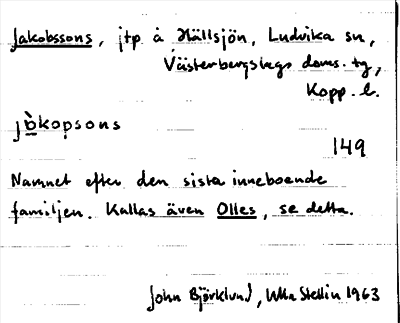 Jakobssons, jtp å Hällsjön, Ludvika sn,
Västerbergslags doms. tg,
Kopp. l.
jòkopsons
149
Namnet efter den sista inneboende
familjen. Kallas även Olles, se detta.
John Björklund, Ulla Stellin 1963